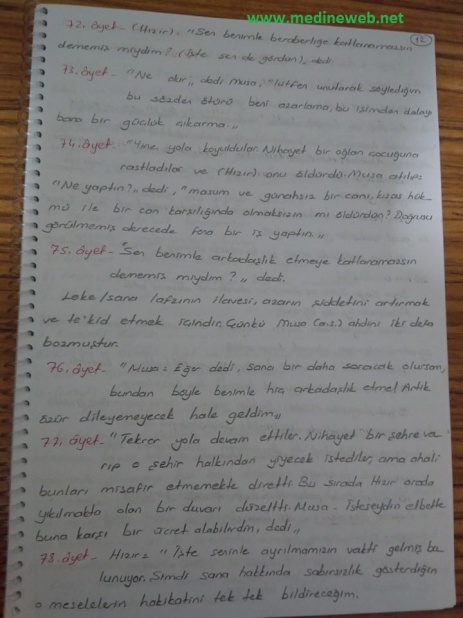 www.medineweb.net
12
72. âyet- (Hızır): "Sen benimle beraberliğe katlanamazsın
dememiş miydim? (İşte sen de gördün)„ dedi.
73. âyet- "Ne olur„ dedi Musa, "lütfen unutarak söylediğim
bu sözden ötürü beni azarlama, bu işimden dolayı
bana bir güçlük çıkarma.„
74. âyet- "Yine yola koyuldular. Nihayet bir oğlan çocuğuna
rastladılar ve (Hızır) onu öldürdü. Musa atılıp:
"Ne yaptın?„ dedi, "masum ve günahsız bir canı, kısas hük-
mü ile bir can karşılığında olmaksızın mı öldürdün? Doğrusu
görülmemiş derecede fena bir iş yaptın.„
75. âyet- "Sen benimle arkadaşlık etmeye katlanamazsın
dememiş miydim?„ dedi.
Leke/sana lafzının ilavesi, azarın şiddetini artırmak
ve te'kid etmek içindir. Çünkü Musa (a.s.) ahdini iki defa
bozmuştur.
76. âyet- "Musa: Eğer dedi, sana bir daha soracak olursam,
bundan böyle benimle hiç arkadaşlık etme! Artık
özür dileyemeyecek hale geldim„
77. âyet- "Tekrar yola devam ettiler. Nihayet bir şehre va-
rıp o şehir halkından yiyecek istediler, ama ahali
bunları misafir etmemekte diretti. Bu sırada Hızır orada
yıkılmakta olan bir duvarı düzeltti. Musa: İsteseydin elbette
buna karşı bir ücret alabilirdin, dedi„
78. âyet- Hızır: "İşte seninle ayrılmamızın vakti gelmiş bu-
lunuyor. Şimdi sana hakkında sabırsızlık gösterdiğin
o meselelerin hakikatini tek tek bildireceğim.